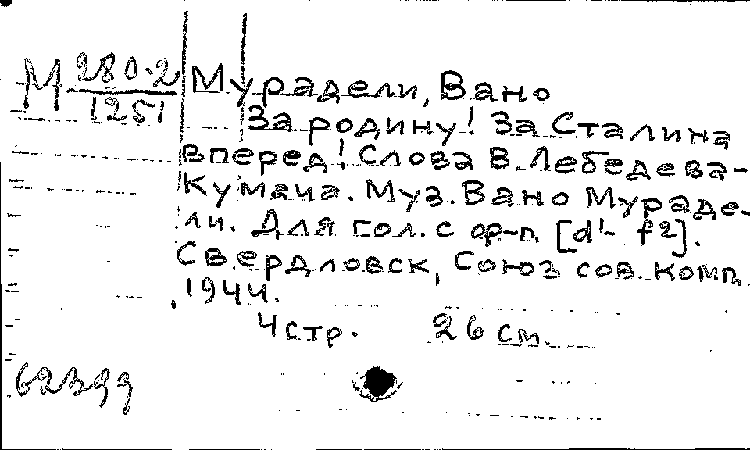 М 280.2 Мурадели, Вано
1251
За родину! За Сталина
вперед! Слова В. Лебедева-
Кумача. Муз. Вано Мураде-
ли. Для гол. с фр-п. [d'- f2].
Свердловск, Союз сов. комп.
1944.
4 стр. 26 см.
62399